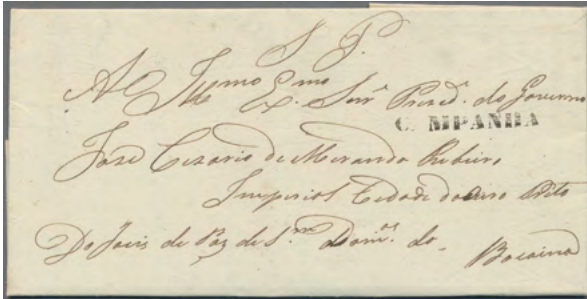 S. P.
Ao Illmo Exmo Snr Presid. do Governo
C MPANHA
José Cezario de Miranda Ribeiro
Imperial Cidade do Ouro Preto
Do Juis de Paz de S.m Dom.s do Bocaina